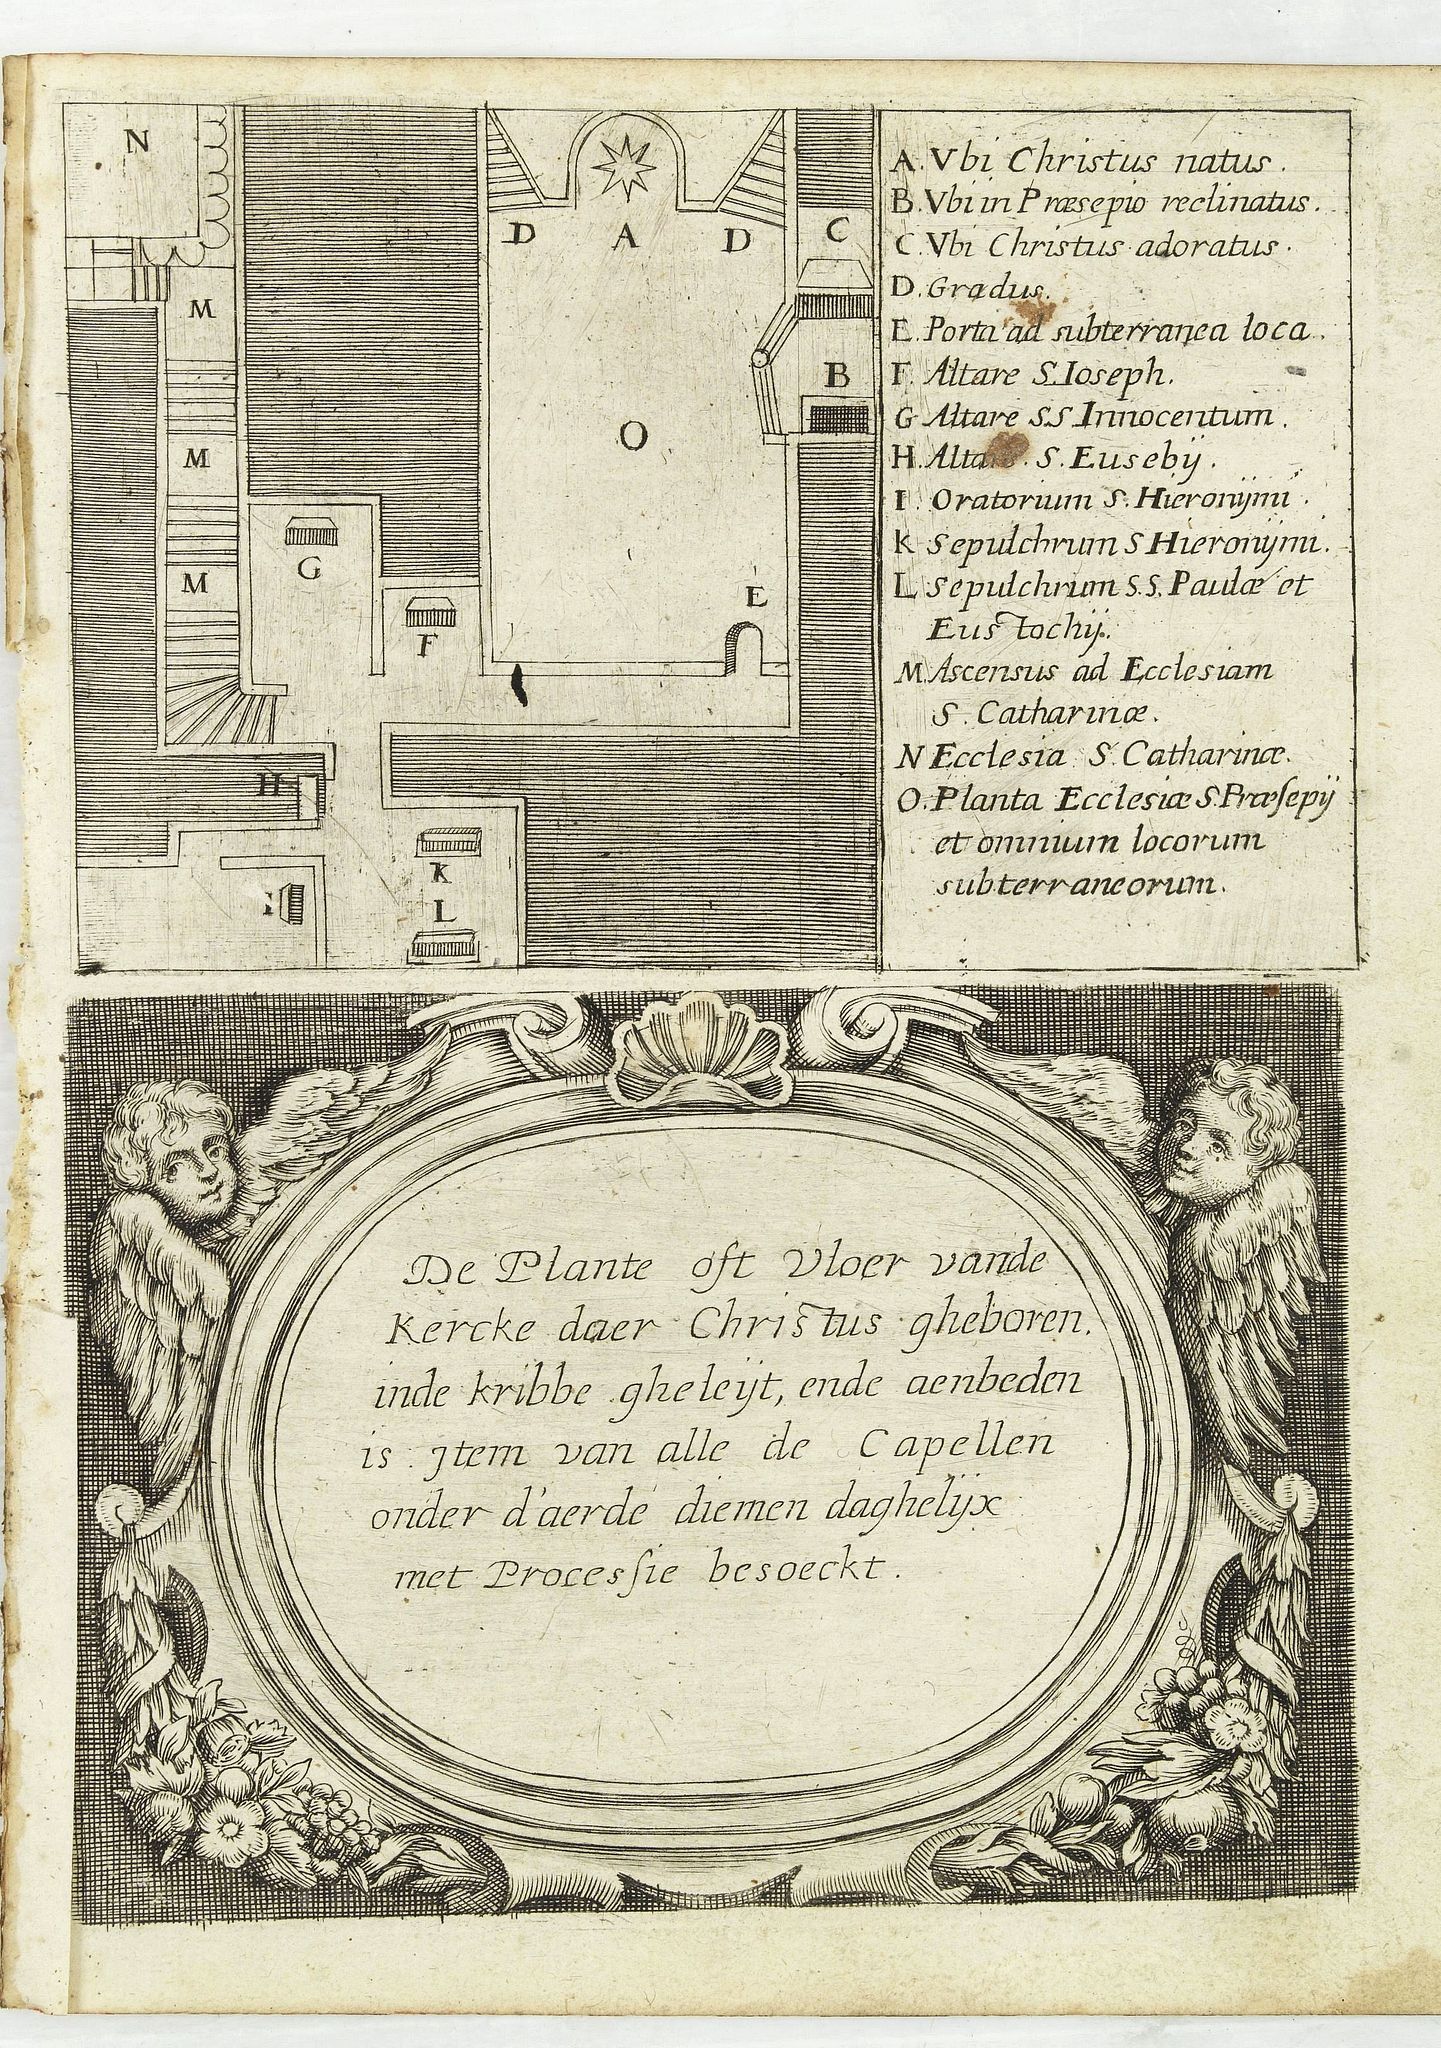 N
M
M
M
D
A
D
C
B
O
G
F
E
H
K
I
L
A. Vbi Christus natus.
B. Vbi in Præsepio reclinatus.
C. Vbi Christus adoratus.
D. Gradus.
E. Porta ad subterranea loca.
F. Altare S. Ioseph.
G Altare SS Innocentum.
H. Altare. S. Eusebij.
I. Oratorium S. Hieronijmi.
K Sepulchrum S Hieronijmi.
L Sepulchrum S.S. Paulæ et
Eustochij.
M. Ascensus ad Ecclesiam
S. Catharinæ.
N Ecclesia S. Catharinæ.
O. Planta Ecclesiæ S. Præſepij
et omnium locorum
subterraneorum.
De Plante oft Vloer vande
Kercke daer Christus gheboren.
inde kribbe gheleijt, ende aenbeden
is. jtem van alle de Capellen
onder d'aerde diemen daghelijx
met Procesſie besoeckt.